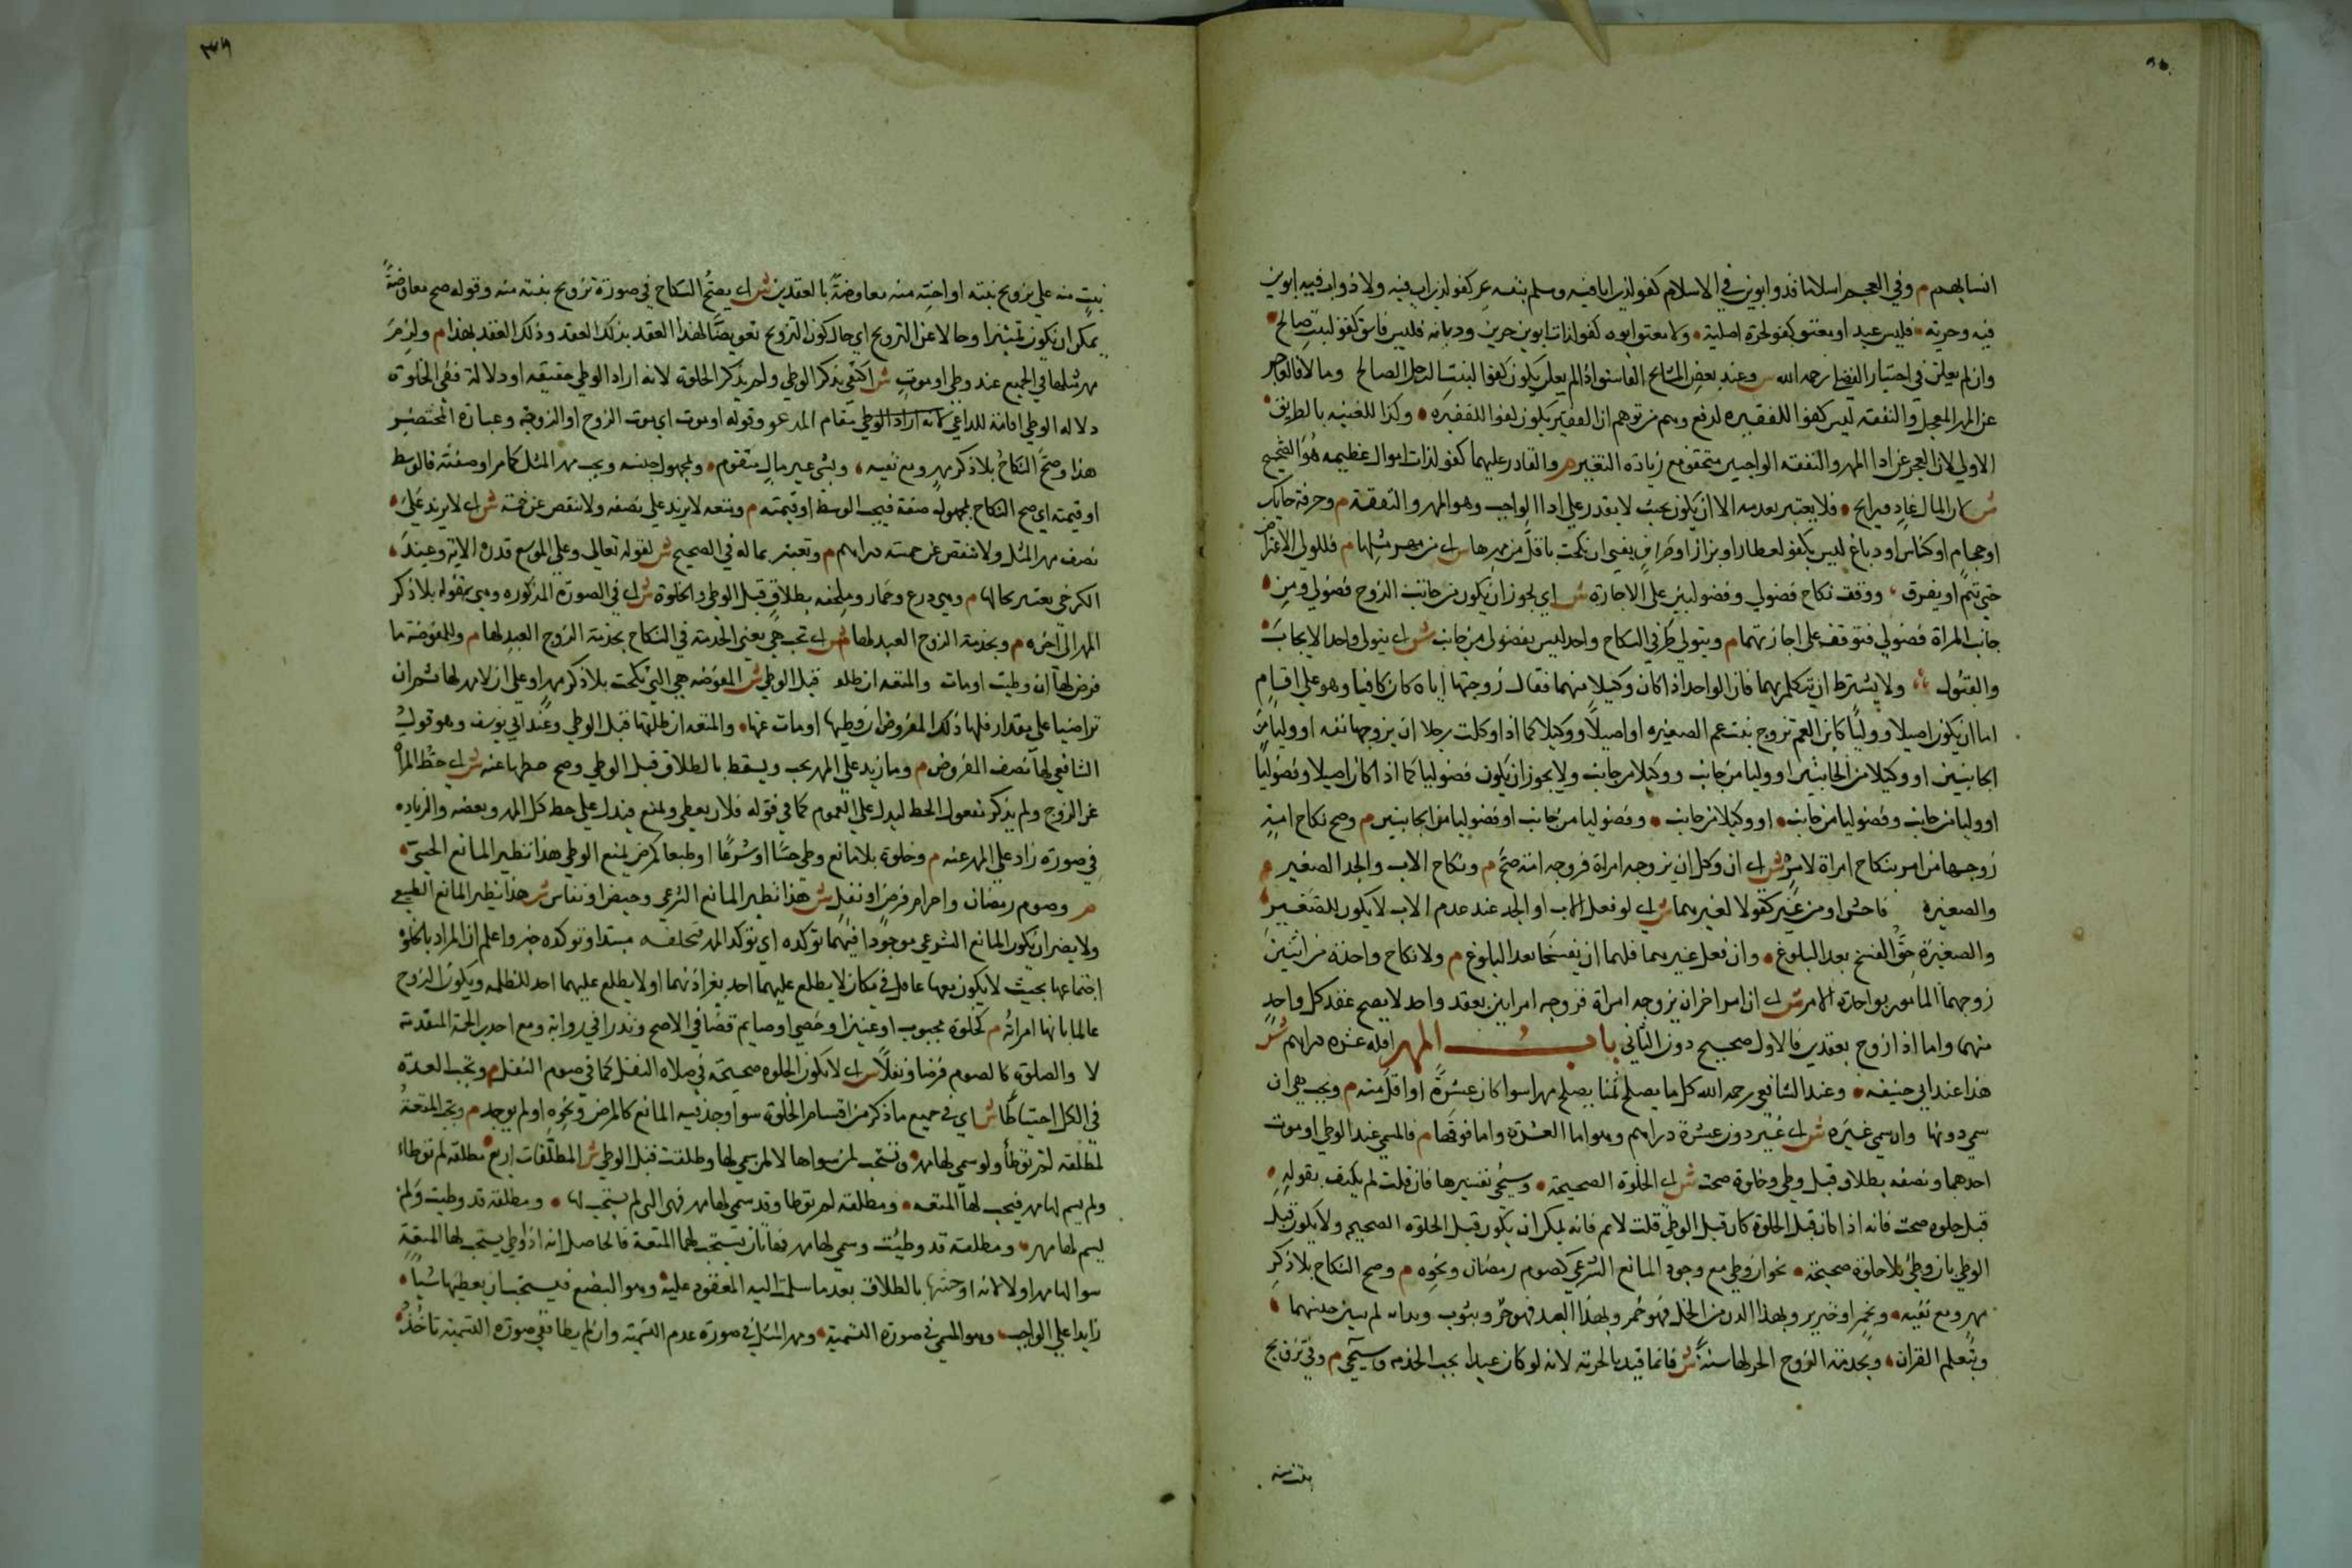 انسابهم م وفي العجم اسلاما فذو ابوين في الاسلام كفو لذي ابا فيه ومسلم بنفسه غير كفو لذي اب فيه ولا ذو اب فيه لذي ابوين
فيه وحرية فليس عبد او معتق كفو لحرة اصلية ولا معتق ابوه كفو لذات ابوين حرين وديانة فليس فاسق كفو لبنت صالح
وان لم يعلن في اختيار الفضلي رحمه الله ش وعند بعض المشايخ الفاسق اذا لم يعلن يكون كفوا لبنت الرجل الصالح وما لا فالعاجز
عن المهر المعجل والنفقة ليس كفوا للفقيرة لدفع وهم من توهم ان الفقير يكون كفوا للفقيرة وكذا للغنية بالطريق
الاولى لان العجز عن ادا المهر والنفقة الواجبين متحقق مع زيادة التغيير م والقادر عليهما كفو لذات اموال عظيمة هو الصحيح
ش لان المال غاد ورايح فلا يعتبر بعدمه الا ان يكون بحيث لا يقدر على ادا الواجب وهو المهر والنفقة م وحرفة فحايك
او حجام او كناس او دباغ ليس بكفو لعطار او بزاز او صراف يعني ان نكحت باقل من مهرها ش اي من مهر مثلها م فللولي الاعتراض
حتى يتم او يفرق ووقف نكاح فضولي وفضوليين على الاجازة ش اي يجوز ان يكون من جانب الزوج فضولي ومن
جانب المراة فضولي فتوقف على اجازتهما م ويتولى طرفي النكاح واحد ليس بفضولي من جانب ش اي يتولى واحد الايجاب
والقبول ولا يشترط ان يتكلم بهما فان الواحد اذا كان وكيلا منهما فقال زوجتها اياه كان كافيا وهو على اقسام
اما ان يكون اصيلا ووليا كابن العم تزوج بنت عمه الصغيرة او اصيلا ووكيلا كما اذا وكلت رجلا ان يزوجها نفسه او وليا من
الجانبين او وكيلا من الجانبين او وليا من جانب ووكيلا من جانب ولا يجوز ان يكون فضوليا كما اذا كان اصيلا وفضوليا
او وليا من جانب وفضوليا من جانب او وكيلا من جانب وفضوليا من جانب او فضوليا من الجانبين م وصح نكاح امة
زوجها من امر بنكاح امراة لامر ش اي ان وكل ان يزوجه امراة فزوجه امته صح م ونكاح الاب والجد الصغير م
والصغيرة فاحش او من غير كفو لا لغيرهما ش اي لو فعل الاب او الجد عند عدم الاب لا يكون للصغير
والصغيرة حق الفسخ بعد البلوغ وان فعل غيرهما فلهما ان يفسخا بعد البلوغ م ولا نكاح واحدة من اثنين
زوجهما المامور بواحدة الامر ش اي ان امر اخر ان يزوجه امراة فزوجه امراتين بعقد واحد لا يصح عقد كل واحد
منهما واما اذا زوج بعقدين فالاول صحيح دون الثاني باب المهر اقله عشرة دراهم ش
هذا عند ابي حنيفة وعند الشافعي رحمه الله كل ما يصلح ثمنا يصلح مهرا سوا كان عشرة او اقل منه م ويجب هي ان
سمى دونها وان سمى غيره ش اي غير دون عشرة دراهم وهو اما العشرة واما فوقها م فالمسمى عند الوطي او موت
احدهما ونصفه بطلاق قبل وطي وخلوة صحت ش اي الخلوة الصحيحة وسيجي تفسيرها فان قلت لم يكتف بقوله
قبل خلوة صحت فانه اذا كان قبل الخلوة كان قبل الوطي قلت لا نم فانه يمكن ان يكون قبل الخلوة الصحيحة ولا يكون قبل
الوطي بان وطي بلا خلوة صحيحة نحو ان وطي مع وجود المانع الشرعي كصوم رمضان ونحوه م وصح النكاح بلا ذكر
مهر ومع نفيه وبخمر او خنزير وبهذا الدن من الخل فهو خمر وبهذا العبد فهو حر وبثوب وبدابة لم يبين جنسهما
وبتعليم القران وبخدمة الزوج الحر لها سنة ش فانما قيد بالحرية لانه لو كان عبدا يجب الخدمة وسيجي م وفي تزويج
بنت منه
بنت منه على تزويج بنته او اخته منه معاوضة بالعقدين ش اي يصح النكاح في صورة تزويج بنته منه وقوله صح معاوضة
يمكن ان يكون تمييزا وحالا عن التزويج اي حال كون التزويج تعويضا لهذا العقد بذلك العقد وذلك العقد بهذا م ولزم
مهر مثلها في الجميع عند وطي او موت ش اكتفى بذكر الوطي ولم يذكر الخلوة لانه اراد الوطي حقيقة او دلالة ففي الخلوة
دلالة الوطي اقامة للداعي مقام المدعو وقوله او موت اي موت الزوج او الزوجة وعبارة المختصر
هذا وصح النكاح بلا ذكر مهر ومع نفيه وبشي غير مال متقوم وبمجهول جنسه ويجب مهر المثل كما مر او صفته فالوسط
او قيمته اي صح النكاح بمجهول صفة فيجب الوسط او قيمته م ومتعة لا يزيد على نصفه ولا تنقص عن خمسة ش اي لا يزيد على
نصف مهر المثل ولا تنقص عن خمسة دراهم م وتعتبر بحاله في الصحيح ش لقوله تعالى وعلى الموسع قدره الاية وعند
الكرخي يعتبر بحالها م وهي درع وخمار وملحفة بطلاق قبل الوطي والخلوة ش اي في الصورة المذكورة وهي قوله بلا ذكر
المهر الى اخره م وبخدمة الزوج العبد لها م ش اي تجب هي يعني الخدمة في النكاح بخدمة الزوج العبد لها م وللمفوضة ما
فرض لها ان وطيت او مات والمتعة ان طلق قبل الوطي ش المفوضة هي التي نكحت بلا ذكر مهر او على ان لا مهر لها ثم ان
تراضيا على مقدار فلها ذلك المفروض ان وطيها او مات عنها والمتعة ان طلقها قبل الوطي وعند ابي يوسف وهو قول
الشافعي لها نصف المفروض م وما زيد على المهر يجب ويسقط بالطلاق قبل الوطي وصح حطها عنه ش اي حط المراة
عن الزوج ولم يذكر مفعول الحط ليدل على العموم كما في قوله فلان يعطي ويمنع فيدل على حط كل المهر وبعضه والزيادة
في صورة زاد على المهر عنه م وخلوة بلا مانع وطي حسا او شرعا او طبعا كمرض يمنع الوطي هذا نظير المانع الحسي
م وصوم رمضان واحرام فرض او نفل ش هذا نظير المانع الشرعي وحيض او نفاس ش هذا نظير المانع الطبعي
ولا يضر ان يكون المانع الشرعي موجودا فيهما توكده اي توكد المهر مبتدا وتوكده خبر واعلم ان المراد بالخلوة
اجتماعها بحيث لا يكون معها عاقل في مكان لا يطلع عليهما احد بغير اذنهما او لا يطلع عليهما احد للظلمة ويكون الزوج
عالما بانها امراته م كخلوة مجبوب او عنين او خصي او صايم قضا في الاصح ونذرا في رواية ومع احدي الخمسة المتقدمة
لا والصلوة كالصوم فرضا ونفلا ش اي لا يكون الخلوة صحيحة في صلاة الفرض كما في صوم النفل م وتجب العدة
في الكل احتياطا ش اي في جميع ما ذكر من اقسام الخلوة سوا وجد فيه المانع كالمرض ونحوه او لم يوجد م وتجب المتعة
لمطلقة لم توطا ولو سمى لها مهر وتستحب لمن سواها الا لمن سمى لها وطلقت قبل الوطي ش المطلقات اربع مطلقة لم توطا
ولم يسم لها مهر فيجب لها المتعة ومطلقة لم توطا وقد سمى لها مهر فهي التي لم يستحب لها ومطلقة قد وطيت ولم
يسم لها مهر ومطلقة قد وطيت وسمى لها مهر فهاتان تستحب لهما المتعة فالحاصل انه اذا وطي يستحب لها المتعة
سوا لها مهر او لا لانه اوحشها بالطلاق بعدما سلمت اليه المعقود عليه وهو البضع فيستحب ان يعطيها شيا
زايدا على الواجب وهو المسمى في صورة التسمية ومهر المثل في صورة عدم التسمية وان لم يطا ففي صورة التسمية تاخذ